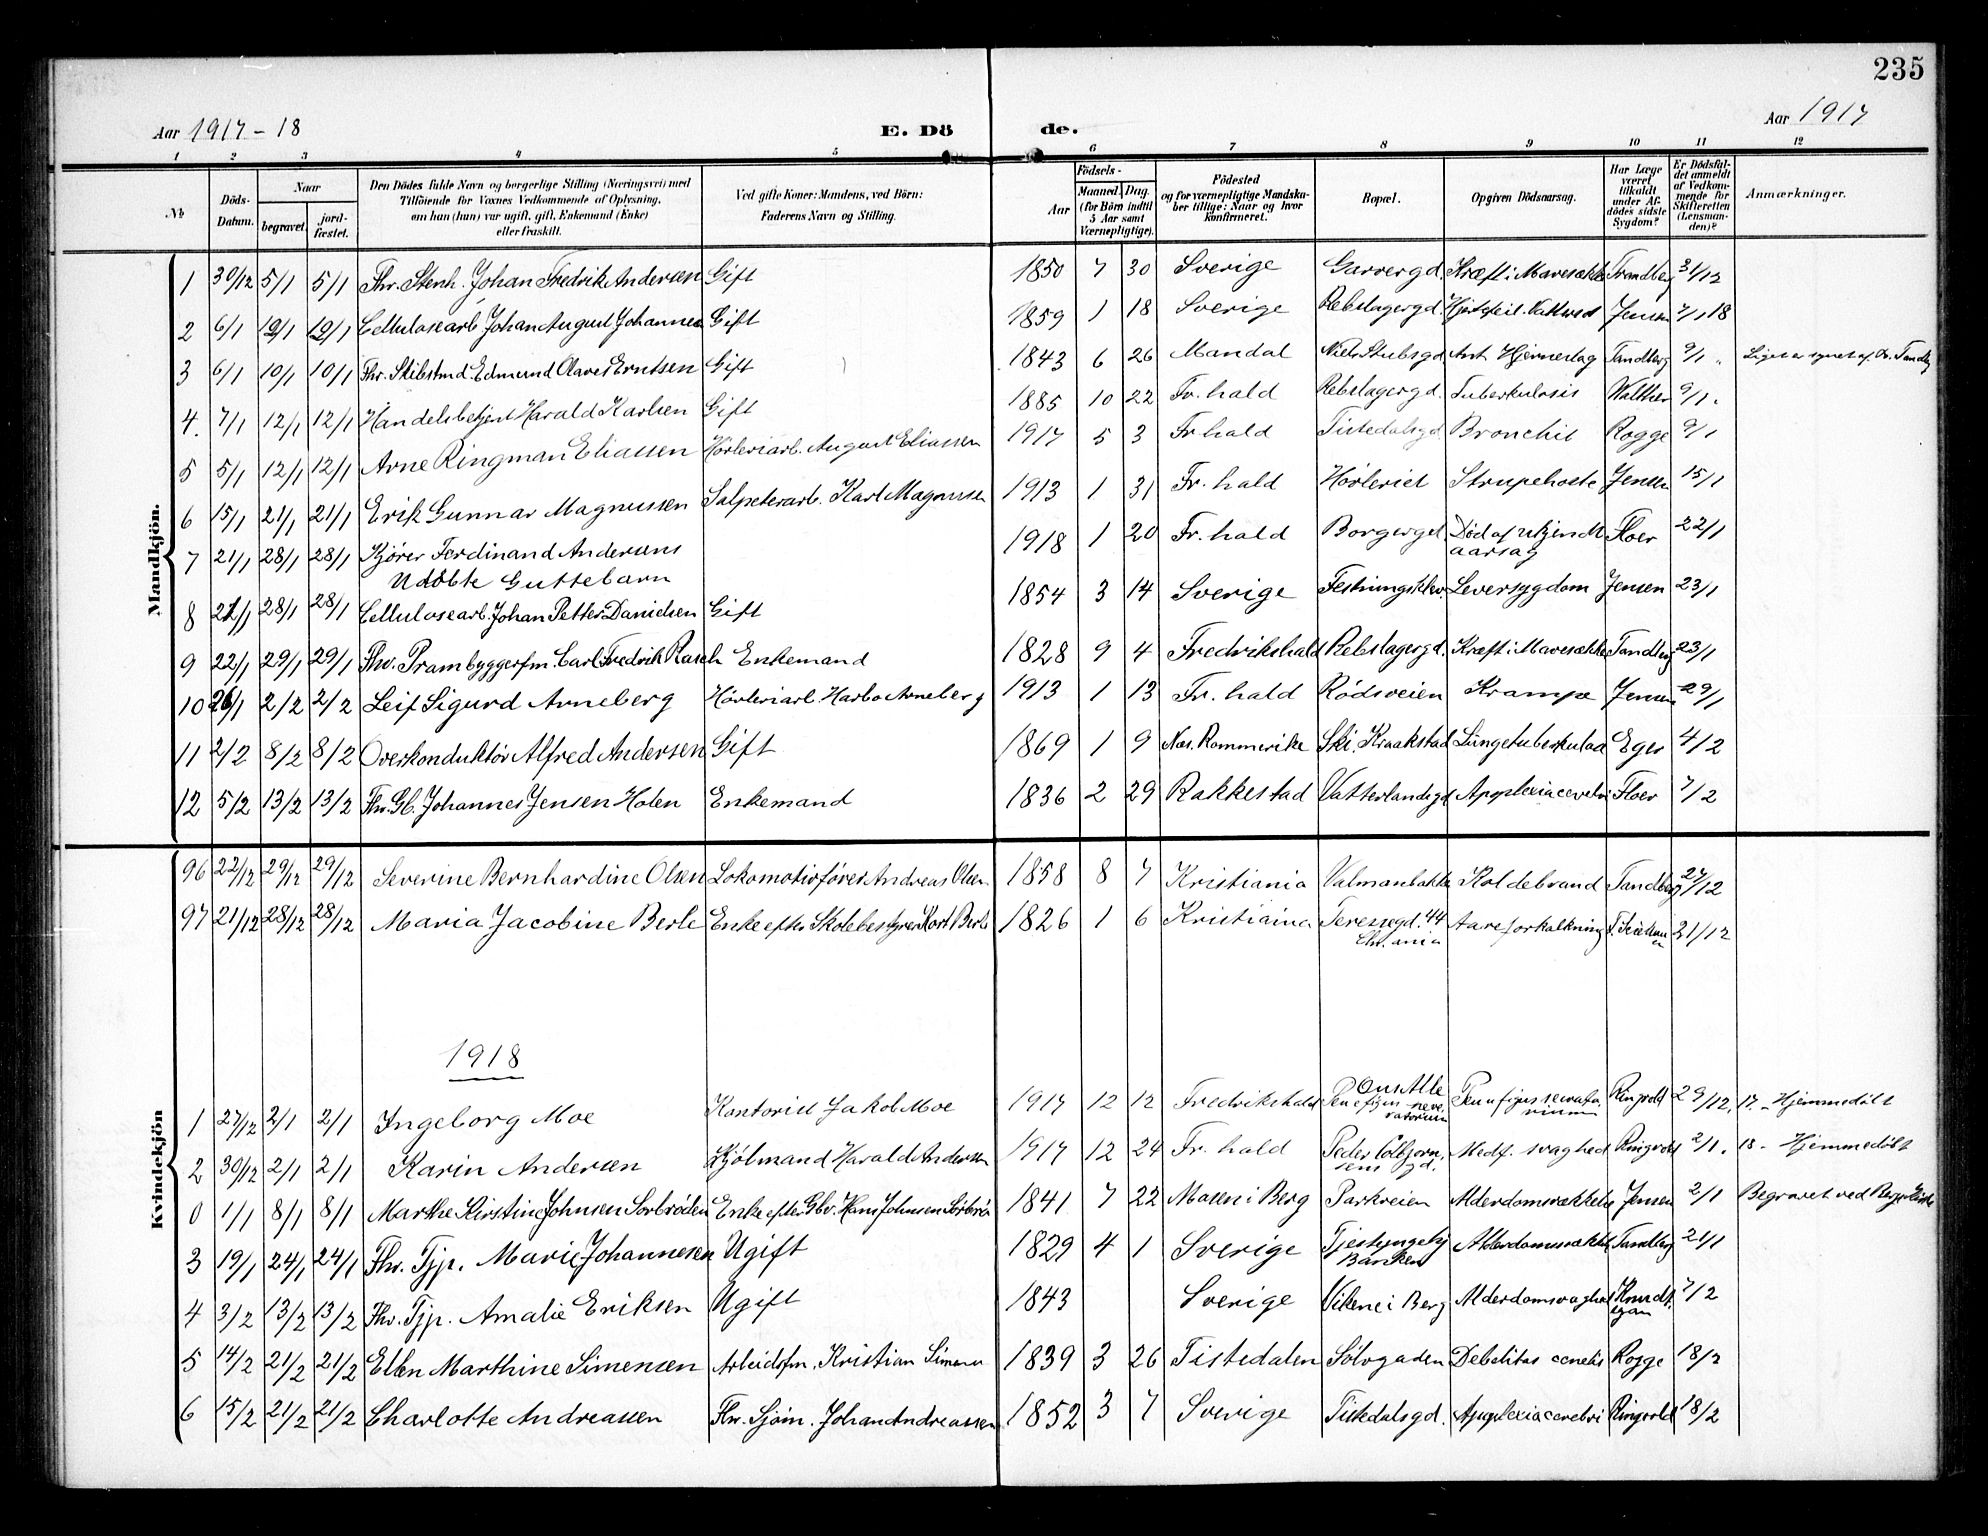 235
Aar 1917-18 E. Dö de. Aar 1917
1 2 3 4 5 6 7 8 9 10 11 12
No
Döds-Datum.
Naar
begravet.
jord-fæstet.
Den Dödes fulde Navn og borgerlige Stilling (Næringsvei) med
Tilföiende for Voxnes Vedkommende af Oplysning,
om han (hun) var ugift, gift, Enkemand (Enke)
eller fraskilt.
Ved gifte Koner: Mandens, ved Börn:
Faderens Navn og Stilling.
Födsels-
Aar
Maaned. Dag.
(for Börn indtil
5 Aar samt
Værnepligtige).
Födested
og for værnepligtige Mandska-
ber tillige: Naar og hvor
konfirmeret.
Bopæl.
Opgiven Dödsaarsag.
Har Læge
været
tilkaldt
under Af-
dödes sidste
Sygdom?
Er Dödsfal-
det anmeldt
af Vedkom-
mende for
Skifteretten
(Lensman-
den)?
Anmærkninger.
Mandkjön.
1 30/12 5/1 5/1 Fhv. Stenh. Johan Fredrik Andersen Gift 1850 7 30 Sverige Garverg d. Kræft i Mavesækken Tandberg 31/12
2 6/1 12/1 12/1 Cellulosearb. Johan August Johannesen Gift 1859 1 18 Sverige Rebslagergd. Jensen 7/1 18
3 6/1 10/1 10/1 Fhv. Skibstmd. Edmund Olaves Erntsen Gift 1843 6 26 Mandal Niels Stubsgd Hjerneslag Tandberg 9/1
4. 7/1 12/1 12/1 Handelsbetjent Harald Karlsen Gift 1885 10 22 Fr. hald Rebslagergd. Tuberkulosis Walther 9/1.
5 5/1 12/1 12/1 Arne Ringman Eliassen Hörleriarb. August Eliassen 1917 5 3 Fr hald Tistedalsgd Bronchit Rogge 9/1
6 15/1 21/1 21/1 Erik Gunnar Magnussen Salpeterarb. Karl Magnussen 1913 1 31 Fr. hald Hörleriet Strupehoste Jensen 15/1
7 21/1 28/1 28/1 Kjörer Ferdinand Andersens 1918 1 20 Fr. hald Borgergd. Död af ukjendt Floer 22/1
Udöbte Guttebarn aarsag
8 21/1 28/1 28/1 Cellulosearb. Johan Petter Danielsen Gift 1854 3 14 Sverige Leversygdom Jensen 23/1
9 22/1 29/1 29/1 Fhv. Prambyggerfm. Carl Fredrik Rasch Enkemand 1828 9 4 Fredrikshald Rebslagergd. Kræft i Mavesækken Tandberg 23/1
10 26/1 2/2 2/2 Leif Sigurd Arneberg Hörleriarb. Harbo Arneberg 1913 1 13 Fr. hald Rödsveien Krampe Jensen 29/1
11 2/2 8/2 8/2 Overkonduktör Alfred Andersen Gift 1869 1 9 Nes. Rommerike Ski. Kraakstad Lungetuberkulos Eger 4/2
12 5/2 13/2 13/2 Fhv. Gb. Johannes Jensen Holen Enkemand 1836 2 29 Rakkestad Vatterlandsgd Apoplexia cerebri Floer 7/2
Kvindekjön
96 22/12 29/12 29/12 Severine Bernhardine Olsen Lokomotivförer Andreas Olsen 1858 8 7 Kristiania Valmanbakken Koldebrand Tandberg 27/12
97 21/12 28/12 28/12 Maria Jacobine Berle Enke efter Skolebestyrer Karl Berle 1826 1 6 Kristiania Teressegd. 44 Aareforkalkning 21/12
Chr. ania
1918
1 27/12 2/1 2/1 Ingeborg Moe Kontorist Jakob Moe 1917 12 12 Fredrikshald Ous Alle Ringvold 29/12. 17. Hjemmedöbt
2 30/12 2/1 2/1 Karin Andersen Kjölmand Harald Andersen 1917 12 24 Fr. hald Peder Colbjörn- Medf. svaghed Ringvold 2/1. 18 - Hjemmedöbt
sens gd.
0 1/1 8/1 8/1 Marthe Kirstine Johnsen Sorbröden Enke efter Gbr. Hans Johnsen Sorbrö 1841 7 22 Mosen i Berg Parkveien Alderdomssvækkelse Jensen 2/1 Begravet ved Berg Kirke
3 19/1 24/1 24/1 Fhv. Tjp. Marie Johannesen Ugift 1829 4 1 Sverige Alderdomssvækk Tandberg 21/1
Banken
4 3/2 13/2 13/2 Fhv. Tjp. Amalie Eriksen Ugift 1843 Sverige Vikene i Berg Alderdomsvaghed Knudt- 7/2
zon
5 14/2 21/2 21/2 Ellen Marthine Simensen Arbeidsfm. Kristian Simensen 1839 3 26 Tistedalen Sölvgaden Debilitas senelis Rogge 18/2
6 15/2 21/2 21/2 Charlotte Andreassen Fhv. Sjöm. Johan Andreassen 1852 3 7 Sverige Tistedalsgd. Apoplexia cerebri Ringvold 18/2